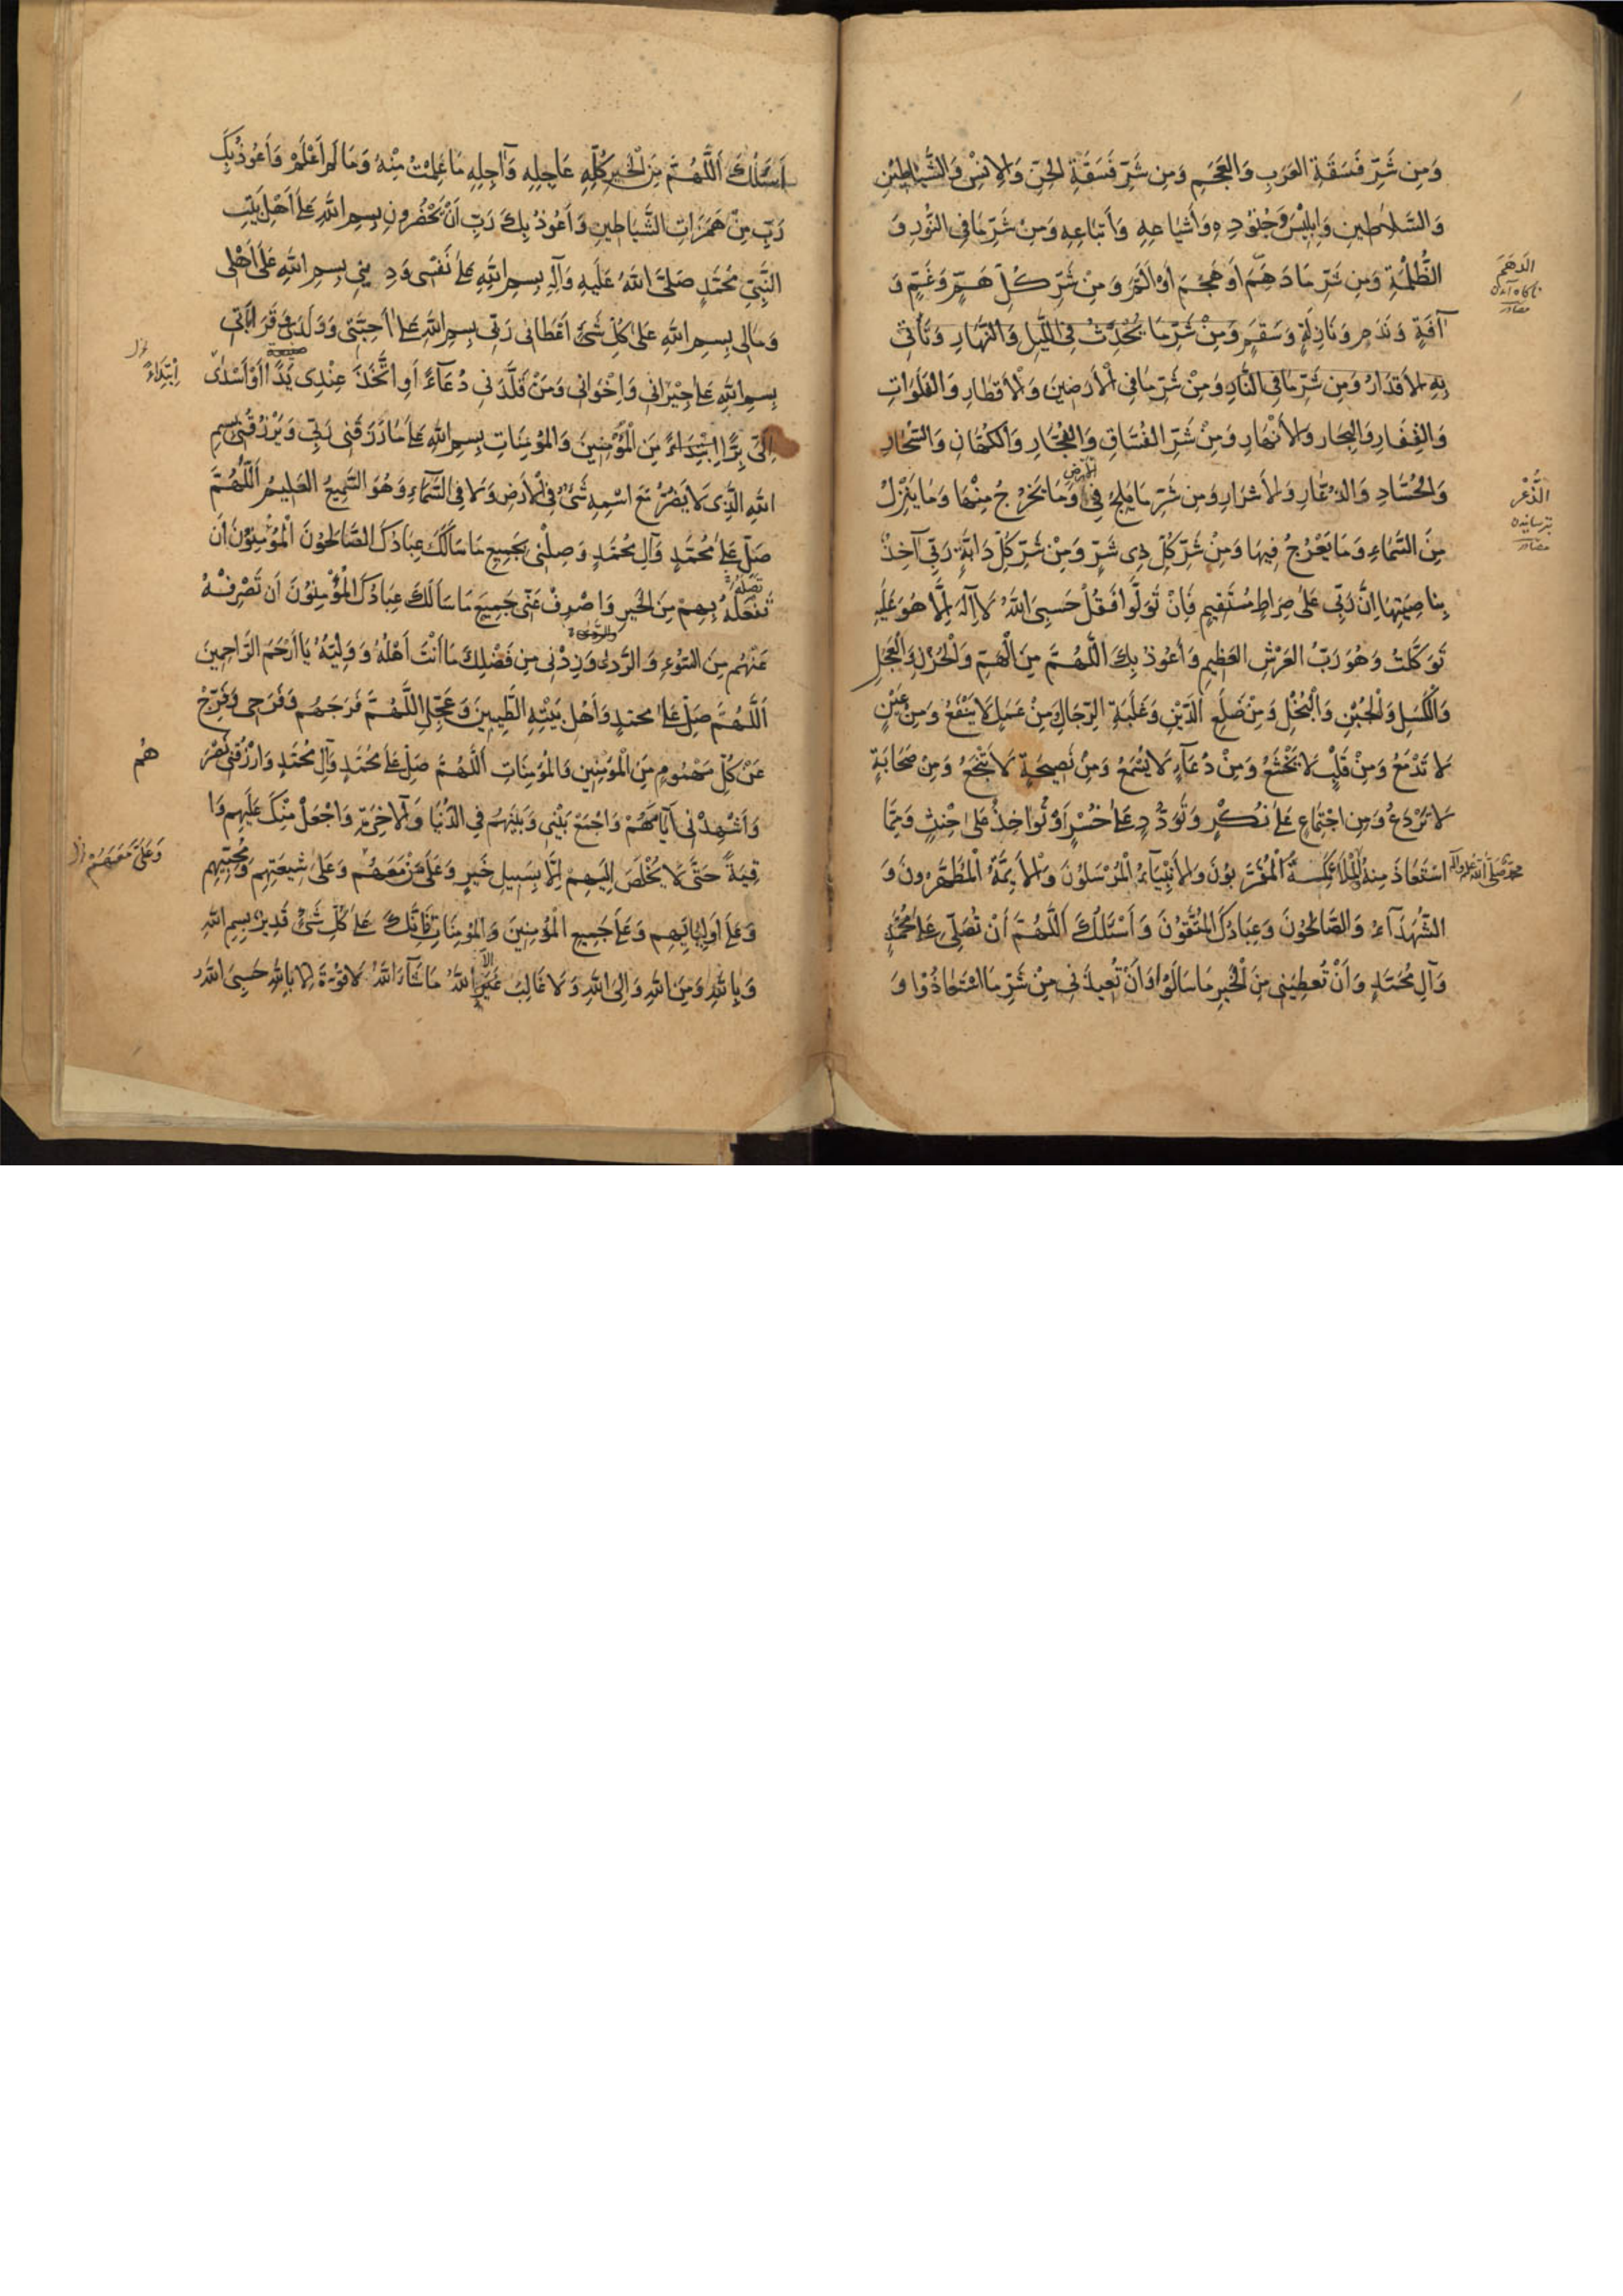 وَمِن شَرِّ فَسَقَةِ العَرَبِ وَالعَجَمِ وَمِن شَرِّ فَسَقَةِ الجِنِّ وَالاِنْسِ وَالشَّيَاطِيْنِ
وَالسَّلاطِينِ وَاِبلِيْسَ وَجُنُوْدِهِ وَأَشيَاعِهِ وَأَتبَاعِهِ وَمِنْ شَرِّ مَا فِي النُّوْرِ وَ
الظُّلْمَةِ وَمِن شَرِّ مَا دَهَمَ أَو هَجَمَ أَوْ أَلَمَّ وَمِنْ شَرِّ كُلِّ هَمٍّ وَغَمٍّ وَ
الدَهَمَ
ناكاه آمدن
مصادر
آفَةٍ وَنَدَمٍ وَنَازِلَةٍ وَسَقَمٍ وَمِنْ شَرِّ مَا يَحْدُثُ فِي اللَّيلِ وَالنَّهَارِ وَتَأتِي
بِهِ الأَقدَارُ وَمِن شَرِّ مَا فِي النَّارِ وَمِنْ شَرِّ مَا فِي الْأَرَضِينَ وَالْأَقطَارِ وَالفَلَوَاتِ
وَالقِفَارِ وَالبِحَارِ وَالأَنْهَارِ وَمِنْ شَرِّ الفُسَّاقِ وَالفُجَّارِ وَالكُهَّانِ وَالسُّحَّارِ
وَالحُسَّادِ وَالذُّعَّارِ وَالأَشرَارِ وَمِن شَرِّ مَا يَلِجُ فِي الْأَرْضِ وَمَا يَخْرُجُ مِنْهَا وَمَا يَنْزِلُ
الذُّعْر
ترسانيدن
مصادر
مِنَ السَّمَاءِ وَمَا يَعْرُجُ فِيهَا وَمِنْ شَرِّ كُلِّ ذِي شَرٍّ وَمِنْ شَرِّ كُلِّ دَابَّةٍ رَبِّي آخِذٌ
بِنَاصِيَتِهَا اِنَّ رَبِّي عَلى صِرَاطٍ مُسْتَقِيمٍ فَاِنْ تَوَلَّوا فَقُلْ حَسبِيَ اللّٰهُ لَا اِلٰهَ اِلَّا هُوَ عَلَيْهِ
تَوَكَّلتُ وَهُوَ رَبُّ العَرْشِ العَظِيمِ وَأَعُوذُ بِكَ اَللّٰهُمَّ مِنَ الْهَمِّ وَالْحُزْنِ وَالْعَجْزِ
وَالْكَسَلِ وَالْجُبْنِ وَالْبُخْلِ وَمِنْ ضَلَعِ الدَّيْنِ وَغَلَبَةِ الرِّجَالِ وَمِنْ عَمَلٍ لَا يَنْفَعُ وَمِنْ عَيْنٍ
لَا تَدْمَعُ وَمِنْ قَلْبٍ لَا يَخْشَعُ وَمِنْ دُعَآءٍ لَا يُسْمَعُ وَمِنْ نَصِيحَةٍ لَا تَنْجَعُ وَمِنْ صَحَابَةٍ
لَا تَرْدَعُ وَمِن اجْتِمَاعٍ عَلىٰ نُكْرٍ وَتَوَدُّدٍ عَلىٰ خُسْرٍ أَوْ تُؤَاخِذُ عَلىٰ خِنثٍ وَمِمَّا
اسْتَعَاذَ مِنهُ الْمَلَائِكَةُ الْمُقَرَّبُونَ وَالأَنْبِيَآءُ الْمُرْسَلُونَ وَالْأَيِمَّةُ الْمُطَهَّرُونَ وَ
محمد صلى الله عليه وآله
الشُّهَدَآءُ وَالصَّالِحُونَ وَعِبَادُكَ المُتَّقُونَ وَأَسْئَلُكَ اَللّٰهُمَّ أَنْ تُصَلِّيَ عَلىٰ مُحَمَّدٍ
وَآلِ مُحَمَّدٍ وَأَنْ تُعطِيَنِي مِنَ الْخَيرِ مَا سَأَلُوا وَأَنْ تُعِيذَنِي مِنْ شَرِّ مَا اسْتَعَاذُوْا وَ
اَسْئَلُكَ اَللّٰهُمَّ مِنَ الْخَيرِ كُلِّهِ عَاجِلِهِ وَآجِلِهِ مَا عَلِمْتُ مِنْهُ وَمَا لَمْ اَعْلَمْ وَاَعُوذُ بِكَ
رَبِّ مِنْ هَمَزَاتِ الشَّيَاطِينِ وَأَعُوذُ بِكَ رَبِّ اَنْ يَحْضُرُونِ بِسمِ اللّٰهِ عَلىٰ أَهْلِ بَيْتِ
النَّبِيِّ مُحَمَّدٍ صَلَّى اللّٰهُ عَلَيهِ وَآلِهِ بِسمِ اللّٰهِ عَلىٰ نَفْسي وَدِيني بِسمِ اللّٰهِ عَلىٰ أَهْلي
وَمَالي بِسمِ اللّٰهِ عَلىٰ كُلِّ شَيءٍ اَعْطَاني رَبّي بِسمِ اللّٰهِ عَلىٰ اَحِبَّتي وَوَلَدي وَقَرَابَاتي
بِسمِ اللّٰهِ عَلىٰ جِيْرَاني وَاِخْوَاني وَمَنْ قَلَّدَني دُعَآءً اَوِ اتَّخَذَ عِنْدِي يَدًا اَوْ اَسْدٰى
اِبْتِدَاءً
اِلَيَّ بِرًّا اِبْتِدَاءً مِنَ الْمُؤْمِنِينَ وَالمُؤمِنَاتِ بِسمِ اللّٰهِ عَلىٰ مَا رَزَقَني رَبِّي وَيَرْزُقُني بِسمِ
اللّٰهِ الَّذِي لَا يَضُرُّ مَعَ اسْمِهِ شَيءٌ فِي الْأَرضِ وَلَا فِي السَّمَآءِ وَهُوَ السَّمِيعُ العَلِيمُ اَللّٰهُمَّ
صَلِّ عَلىٰ مُحَمَّدٍ وَآلِ مُحَمَّدٍ وَصِلْني بِجَمِيعِ مَا سَأَلَكَ عِبَادُكَ الصَّالِحُونَ الْمُؤْمِنُوْنَ اَنْ
تَصِلَهُمْ
تَفْعَلَهُ بِهِمْ مِنَ الْخَيرِ وَاصْرِفْ عَنّي جَمِيعَ مَا سَأَلَكَ عِبَادُكَ الْمُؤْمِنُوْنَ اَنْ تَصْرِفَهُ
عَنْهُم مِنَ السُّوْءِ وَالرَّدىٰ وَزِدْني مِن فَضْلِكَ مَا اَنْتَ اَهْلُهُ وَوَلِيُّهُ يَا اَرْحَمَ الرَّاحِمِينَ
اَللّٰهُمَّ صَلِّ عَلىٰ محمدٍ وَأَهْلِ بَيْتِهِ الطَّيِّبِينَ وَعَجِّلِ اللّٰهُمَّ فَرَجَهُم وَفَرَجي وَفَرِّجْ
عَنْ كُلِّ مَهْمُومٍ مِنَ الْمُؤمِنِينَ وَالمُؤمِنَاتِ اَللّٰهُمَّ صَلِّ عَلىٰ مُحَمَّدٍ وَآلِ مُحَمَّدٍ وَارْزُقْني نَصْرَ
هُم
وَأَشْهِدْني اَيَّامَهُمْ وَاجْمَعْ بَيْني وَبَيْنَهُم فِي الدُّنْيَا وَالْآخِرَةِ وَاجْعَلْ مِنْكَ عَلَيهِم وَا
قِيَةً حَتّىٰ لَا يُخْلَصَ اِلَيهِمْ اِلَّا بِسَبِيلِ خَيرٍ وَعَلىٰ مَنْ مَعَهُم وَعَلىٰ شِيعَتِهِم وَمُحِبِّيهِم
وَعَلَيَّ مَعَهُمْ
وَعَلىٰ اَولِيَائِهِم وَعَلىٰ جَمِيعِ الْمُؤمِنِينَ وَالمُؤمِنَاتِ فَاِنَّكَ عَلىٰ كُلِّ شَيءٍ قَدِيرٌ بِسمِ اللّٰهِ
وَبِاللّٰهِ وَمِنَ اللّٰهِ وَاِلَى اللّٰهِ وَلَا غَالِبَ غَيرُ اللّٰهِ مَا شَآءَ اللّٰهُ لَا قُوَّةَ اِلَّا بِاللّٰهِ حَسبِيَ اللّٰهُ